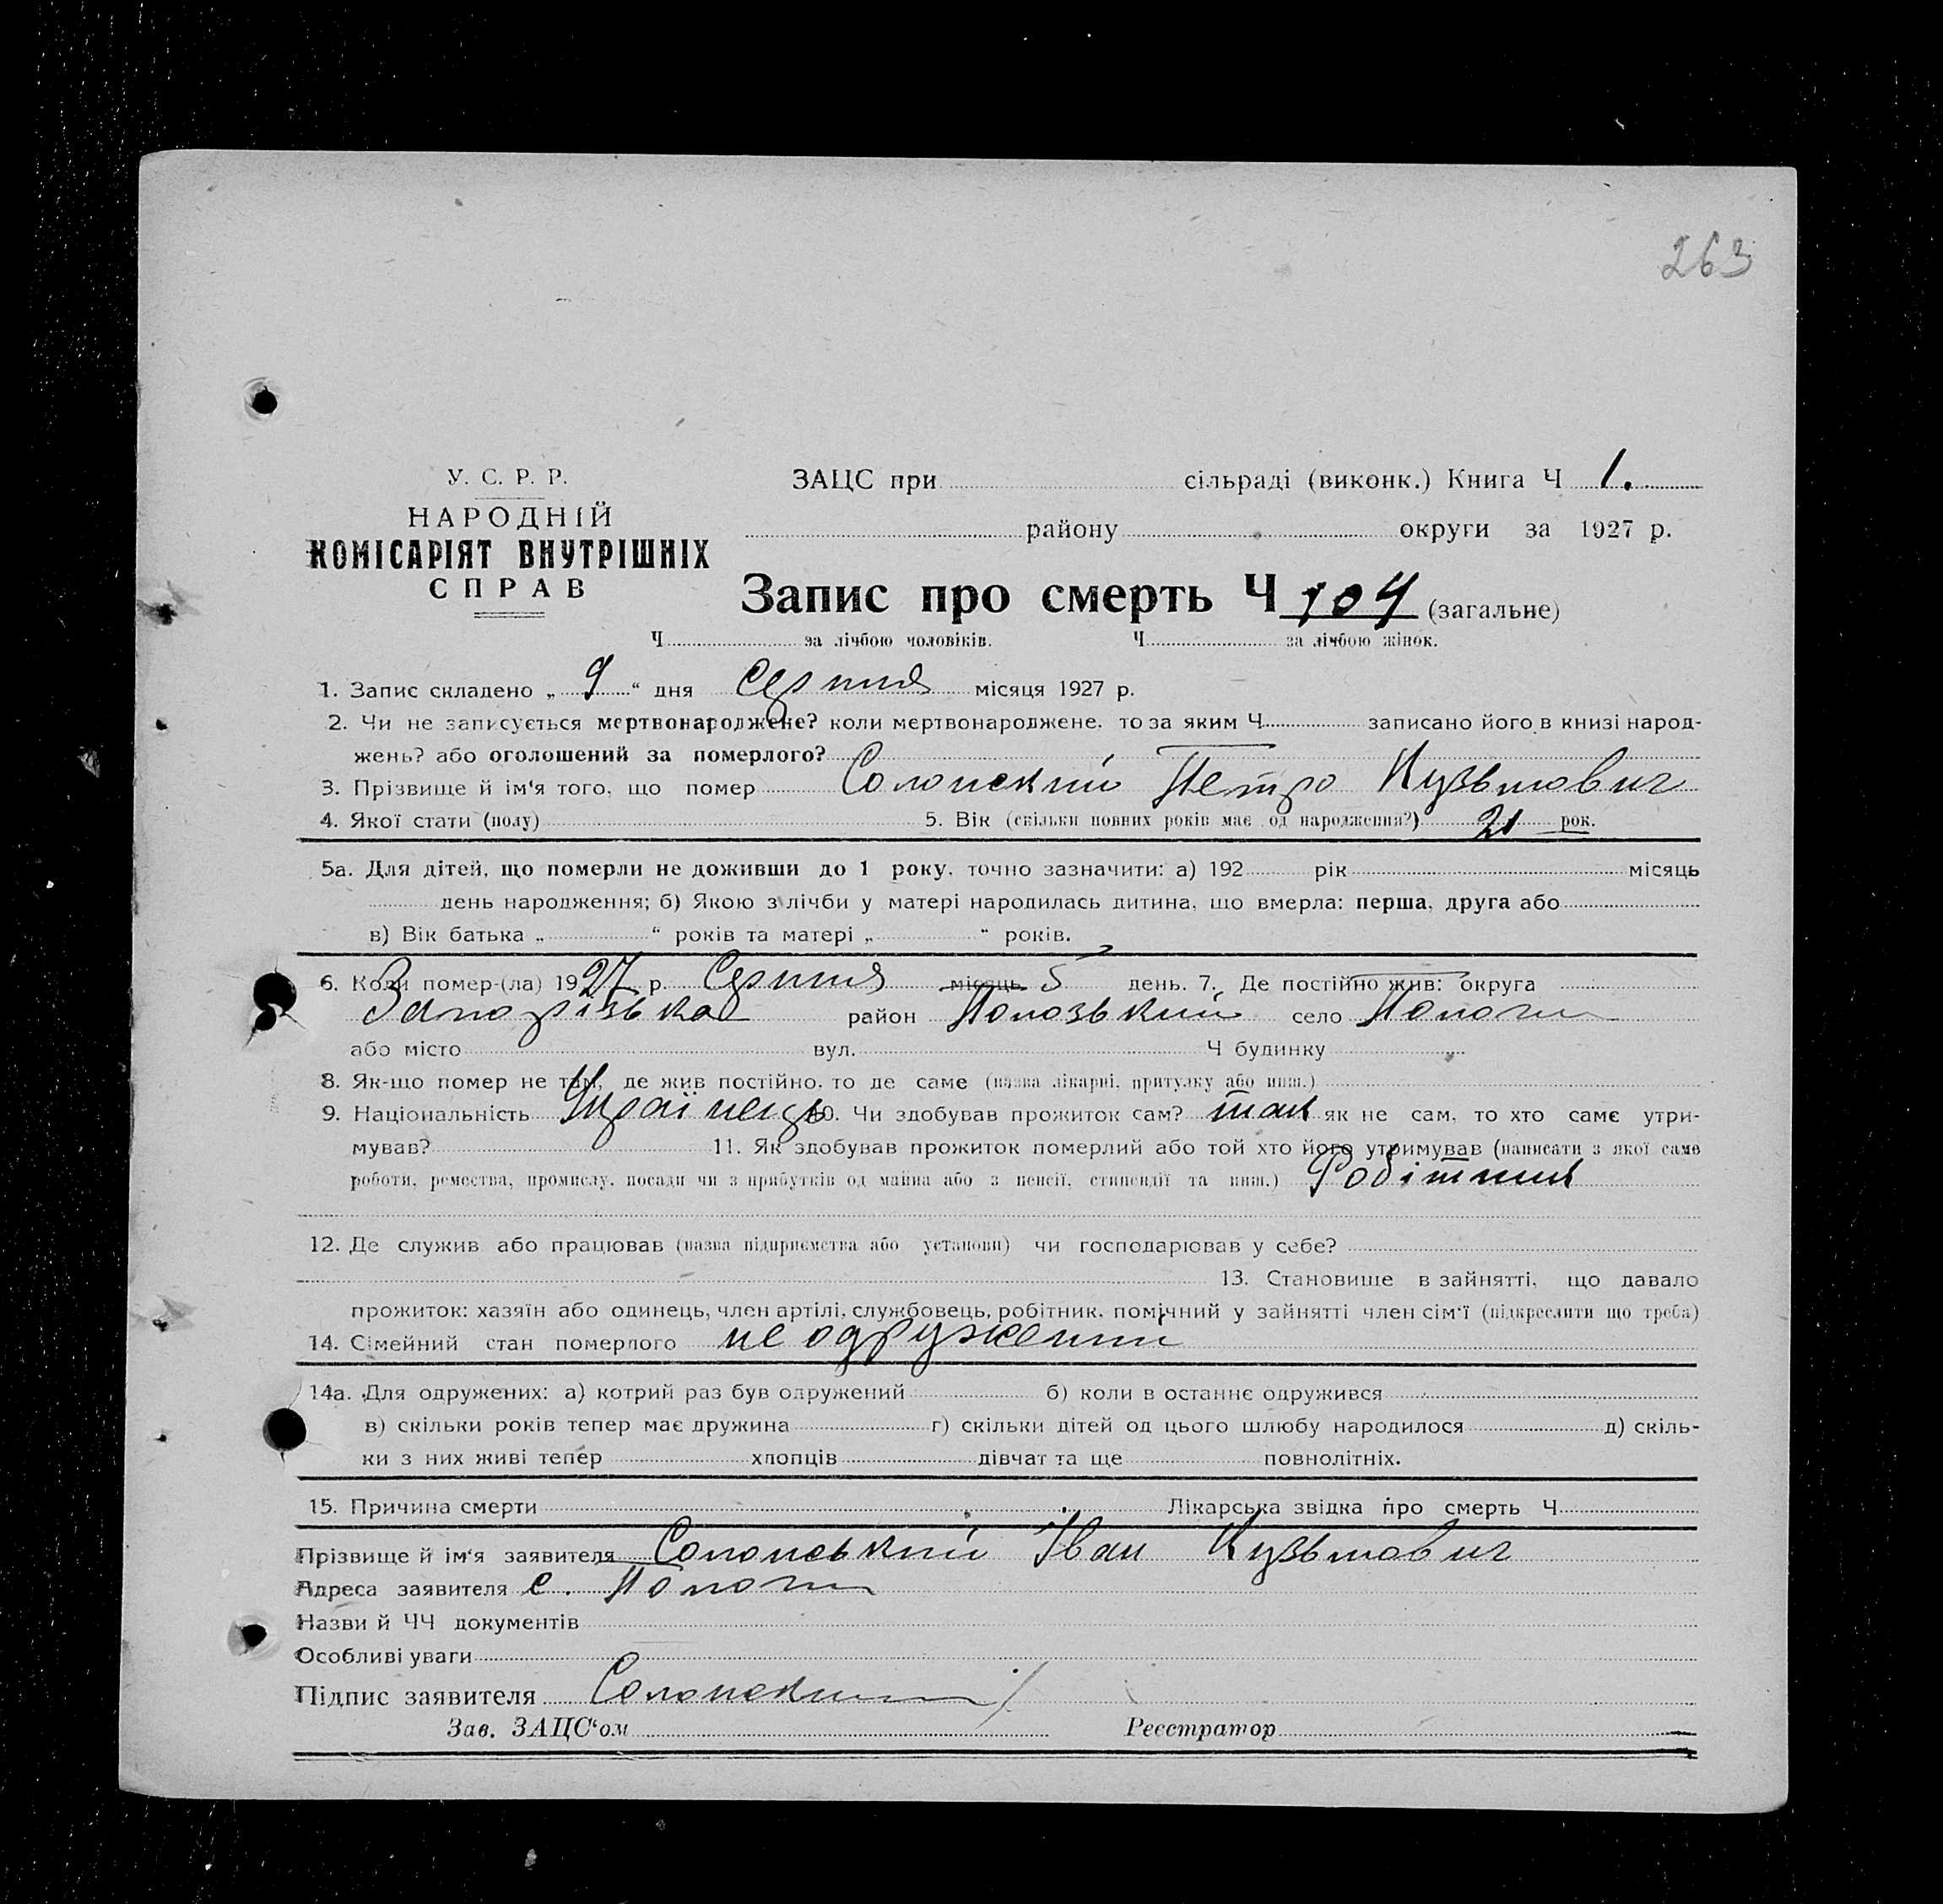 263
У. С. Р. Р.
НАРОДНІЙ
КОМІСАРІЯТ ВНУТРІШНІХ
СПРАВ
ЗАЦС при сільраді (виконк.) Книга Ч 1.
району округи за 1927 р.
Запис про смерть Ч 104 (загальне)
Ч за лічбою чоловіків. Ч за лічбою жінок.
1. Запис складено „ 9 “ дня Серпня місяця 1927 р.
2. Чи не записується мертвонароджене? коли мертвонароджене, то за яким Ч записано його в книзі народ-
жень? або оголошений за померлого?
3. Прізвище й ім‘я того, що помер Солонский Петро Кузьмович
4. Якої стати (полу) 5. Вік (скільки повних років має од народження?) 21 рок.
5а. Для дітей, що померли не доживши до 1 року, точно зазначити: а) 192 рік місяць
день народження; б) Якою з лічби у матері народилась дитина, що вмерла: перша, друга або
в) Вік батька „ “ років та матері „ “ років.
6. Коли помер-(ла) 1927 р. Серпня місяць 5 день. 7. Де постійно жив: округа
Запорізька район Пологський село Пологи
або місто вул. Ч будинку
8. Як-що помер не там, де жив постійно, то де саме (назва лікарні, притулку або инш.)
9. Національність Українець 10. Чи здобував прожиток сам? так як не сам, то хто саме утри-
мував? 11. Як здобував прожиток померлий або той хто його утримував (написати з якої саме
роботи, ремества, промислу, посади чи з прибутків од майна або з пенсії, стипендії та инш.) Робітник
12. Де служив або працював (назва підприємства або установи) чи господарював у себе?
13. Становище в зайнятті, що давало
прожиток: хазяїн або одинець, член артілі, службовець, робітник, помічний у зайнятті член сім‘ї (підкреслити що треба)
14. Сімейний стан померлого не одружений
14а. Для одружених: а) котрий раз був одружений б) коли в останнє одружився
в) скільки років тепер має дружина г) скільки дітей од цього шлюбу народилося д) скіль-
ки з них живі тепер хлопців дівчат та ще повнолітніх.
15. Причина смерти Лікарська звідка про смерть Ч
Прізвище й ім‘я заявителя Солонський Іван Кузьмович
Адреса заявителя с. Пологи
Назви й ЧЧ документів
Особливі уваги
Підпис заявителя Солонский
Зав. ЗАЦС‘ом Реєстратор